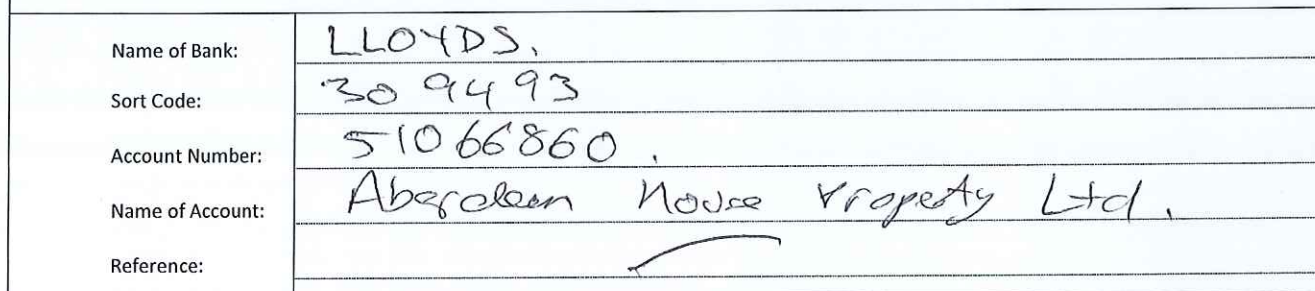 Name of Bank: LLOYDS.
Sort Code: 30 94 93
Account Number: 51066860.
Name of Account: Aberdeen House Property Ltd.
Reference: